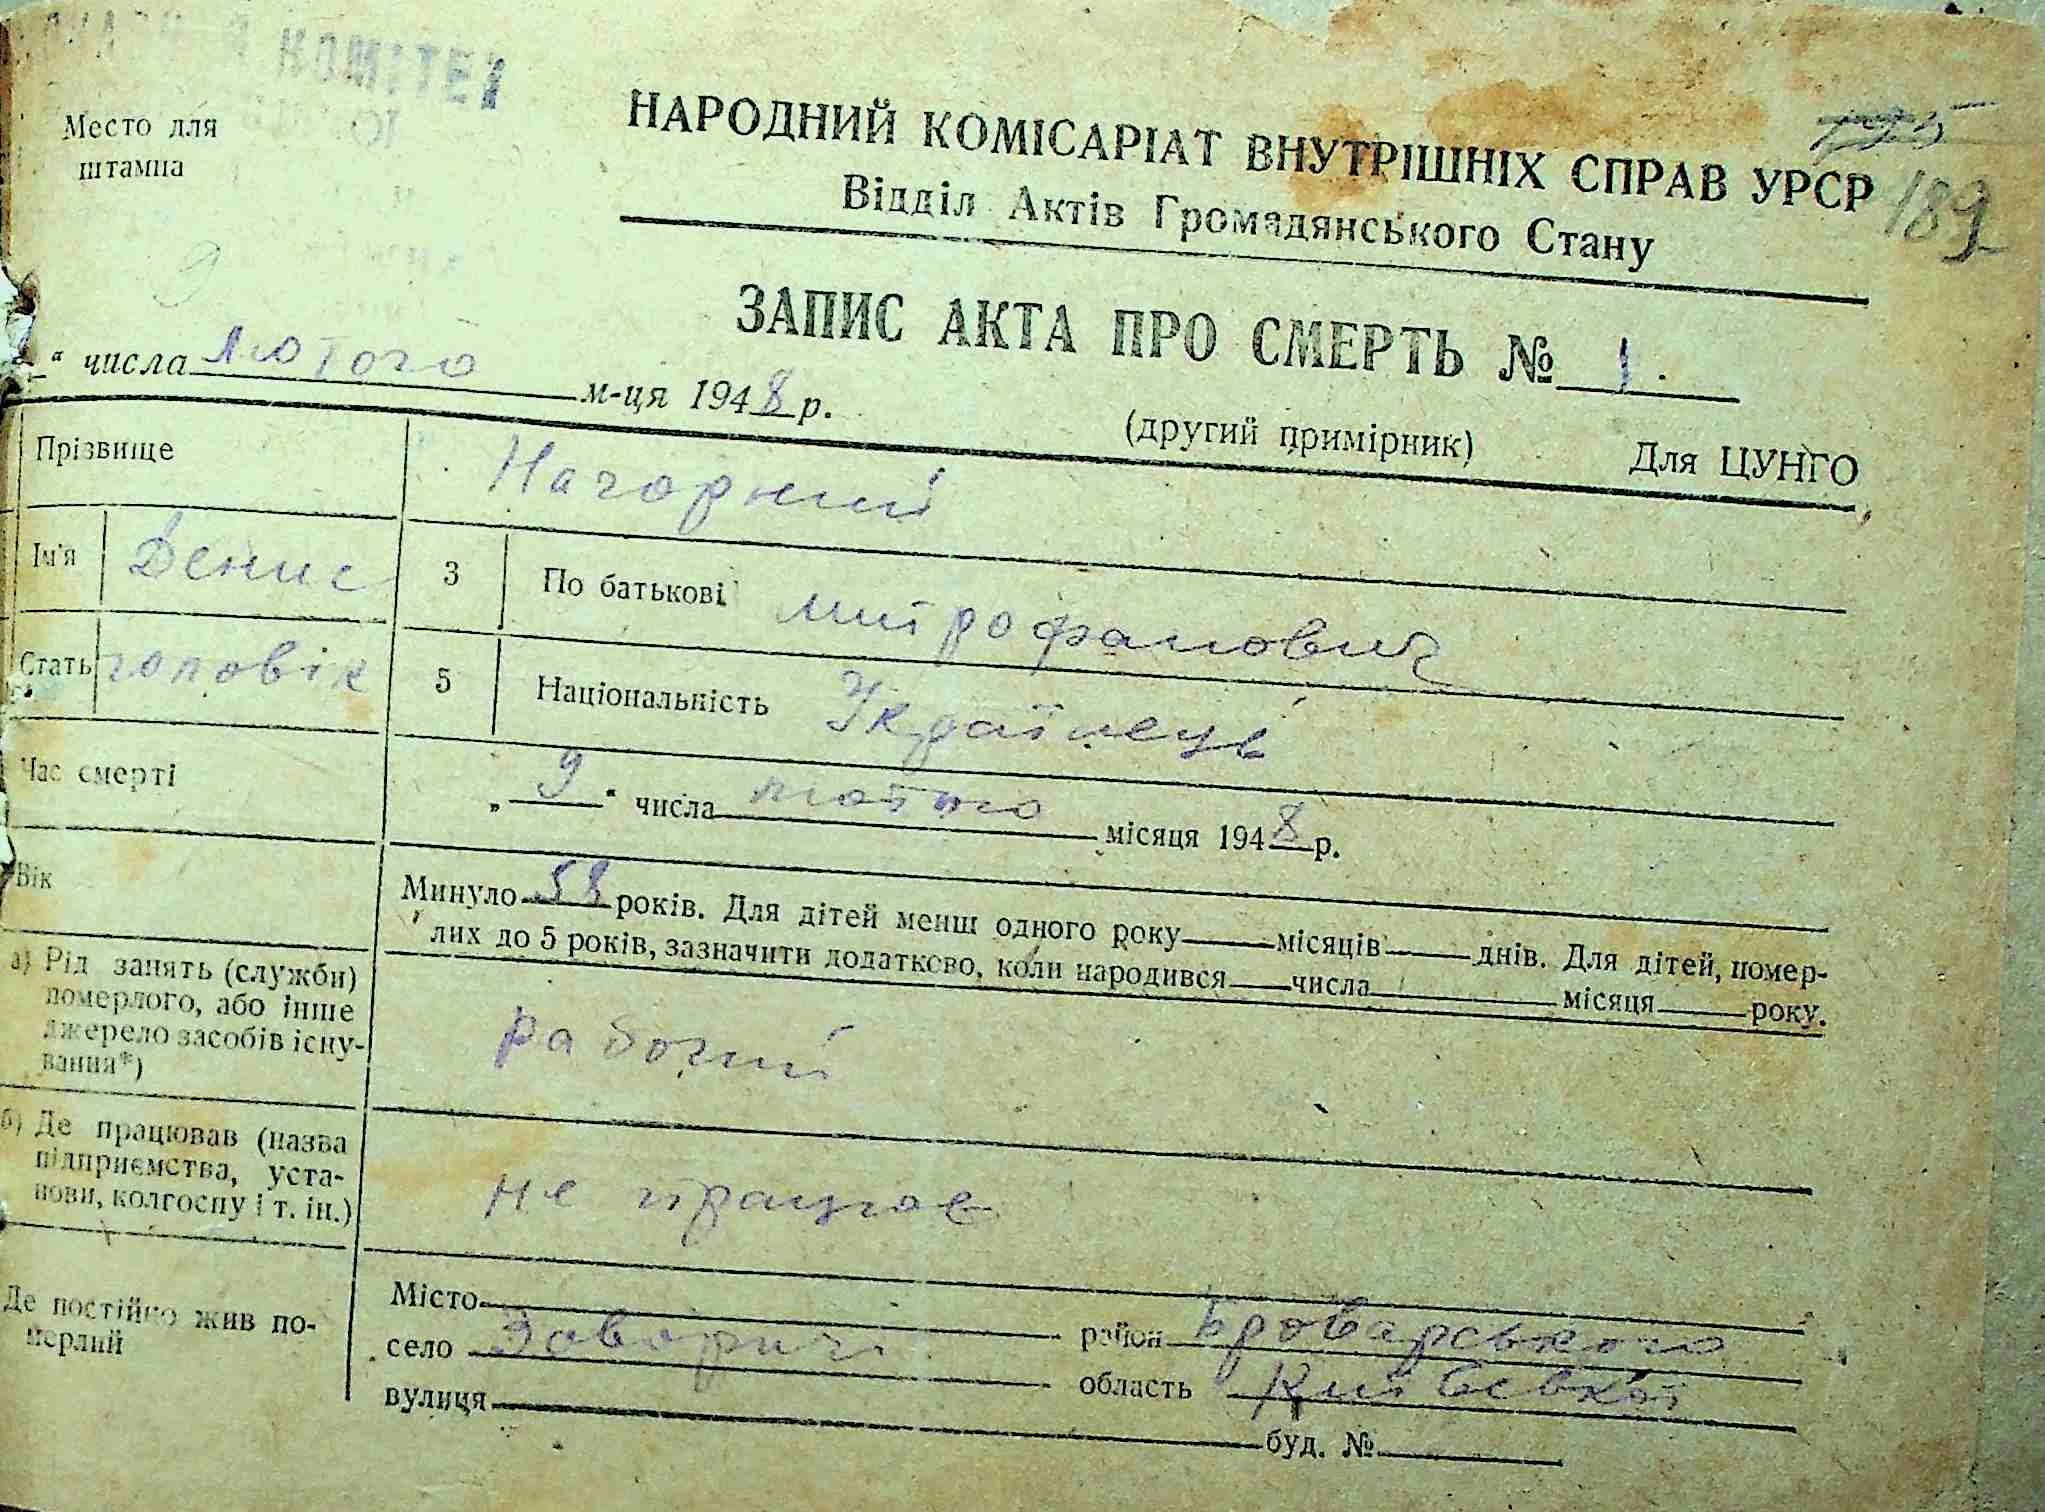 КОМІТЕТ
Место для
штампа
189
НАРОДНИЙ КОМІСАРІАТ ВНУТРІШНІХ СПРАВ УРСР
Відділ Актів Громадянського Стану
ЗАПИС АКТА ПРО СМЕРТЬ № 1.
“ числа лютого м-ця 1948 р.
(другий примірник) Для ЦУНГО
Прізвище Нагорний
Ім'я Денис 3 По батькові митрофанович
Стать чоловік 5 Національність Українець
Час смерті „9“ числа лютого місяця 1948 р.
Вік Минуло 58 років. Для дітей менш одного року місяців днів. Для дітей, помер-
лих до 5 років, зазначити додатково, коли народився числа місяця року.
а) Рід занять (служби)
померлого, або інше
джерело засобів існу-
вання*)
рабочий
б) Де працював (назва
підприємства, уста-
нови, колгоспу і т. ін.)
не працював
Де постійно жив по-
мерлий
Місто район Броварського
село Заворичі область Київської
вулиця буд. №